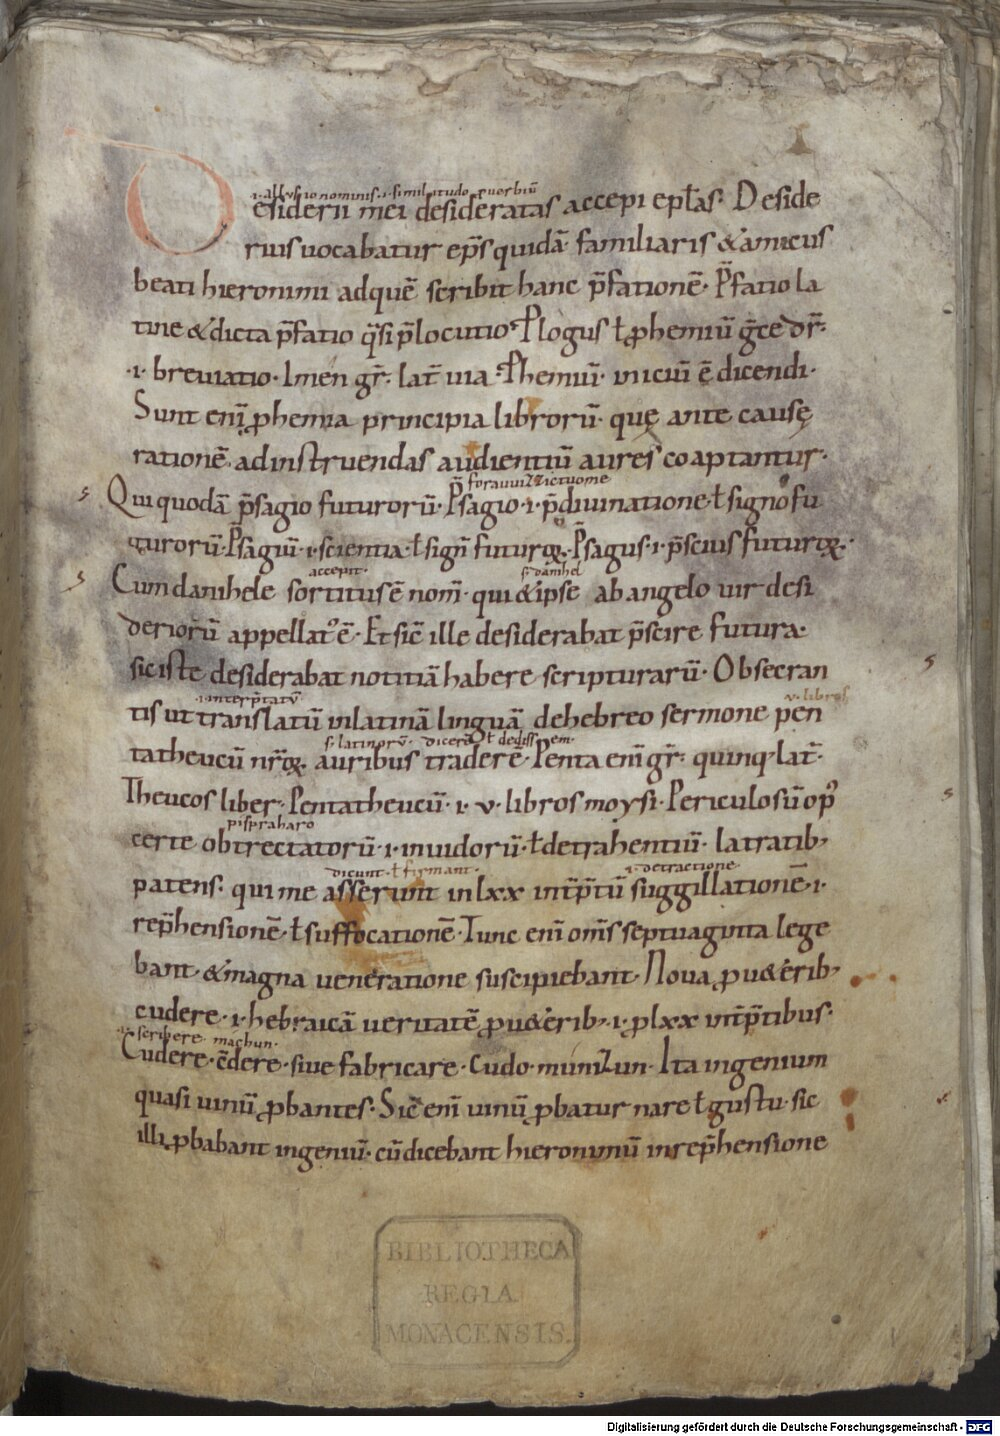 .i. allusio nominis .i. similitudo ꝓuerbiū
Desiderii mei desideratas accepi epl̄as. Deside
rius uocabatur ep̄s quidā familiaris & amicus
beati hieronimi ad quē scribit hanc p̄fationē. P̄fatio la
tine & dicta p̄fatio q̄si p̄locutio. Plogus ł ꝓhemiū ḡce dr̄.
.i. breuiatio. Imen gr̄. lat̄ uia. Phemiū. iniciū ē dicendi.
Sunt enī ꝓhemia principia librorū. quę ante causę
rationē ad instruendas audientiū aures coaptantur.
Qui quodā p̄sagio futurorū. P̄sagio .i. p̄diuinatione ł signo fu
turorū. P̄sagiū .i. scientia ł sign̄ futuroꝝ. P̄sagus .i. p̄scius futuroꝝ.
accepit. s. danihel
Cum danihele sortitus ē nom̄. qui & ipse ab angelo uir desi
deriorū appellat᾽ ē. Et sic̄ ille desiderabat p̄scire futura.
sic iste desiderabat notitiā habere scripturarū. Obsecran
.i. interp̄tatū v. libros
tis ut translatū in latinā linguā de hebreo sermone pen
s. latinorū. dicerē ł dedissem.
tatheucū nr̄oꝝ auribus traderē. Penta enī gr̄. quinq; lat̄.
Theucos liber. Pentatheucū .i. v. libros moysi. Periculosū op᾽
certe obtrectatorū .i. inuidorū ł detrahentiū. latratib;
dicunt ł firmant. .i. detractione.
patens. qui me asserunt in lxx int̄p̄tū suggillationē .i.
rep̄hensionē ł suffocationē. Tunc enī om̄s septuaginta lege
bant. & magna ueneratione suscipiebant. Noua ꝓ u&erib;
cudere .i. hebraicā ueritatē ꝓ u&erib; .i. ꝓ lxx int̄p̄tibus.
scribere machun.
Cudere. ędere. siue fabricare. Cudo munizun. Ita ingenium
quasi uinū ꝓbantes. Sic̄ enī uinū ꝓbatur nare ł gustu. sic
illi ꝓbabant ingeniū. cū dicebant hieronimū in rep̄hensione
BIBLIOTHECA
REGIA
MONACENSIS.
Digitalisierung gefördert durch die Deutsche Forschungsgemeinschaft - DFG